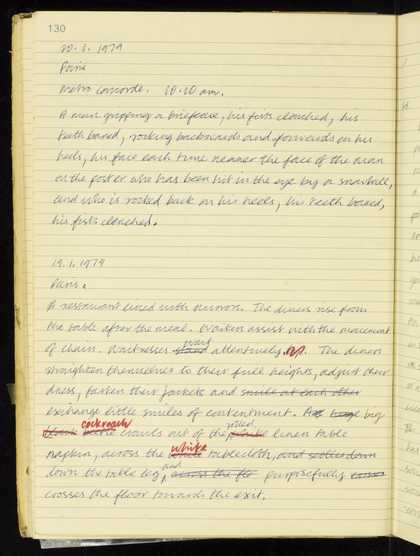 130
20.1.1979
Paris
Metro Concorde. 10.10 am.
A man gripping a briefcase, his fists clenched, his
teeth bared, rocking backwards and forwards on his
heels, his face each time nearer the face of the man
on the poster who has been hit in the eye by a snowball,
and who is rocked back on his heels, his teeth bared,
his fists clenched.
19.1.1979
Paris.
A restaurant lined with mirrors. The diners rise from
the table after the meal. Waiters assist with the movement
wait
of chairs. Waitresses stand attentively. The diners
straighten themselves to their full heights, adjust their
dress, fasten their jackets and smile at each other
exchange little smiles of contentment. A huge big
cockroach
black beetle crawls out of the linen table
white
napkin, across the white tablecloth, and settles down
and
down the table leg, across the flo purposefully crosses
crosses the floor towards the exit.